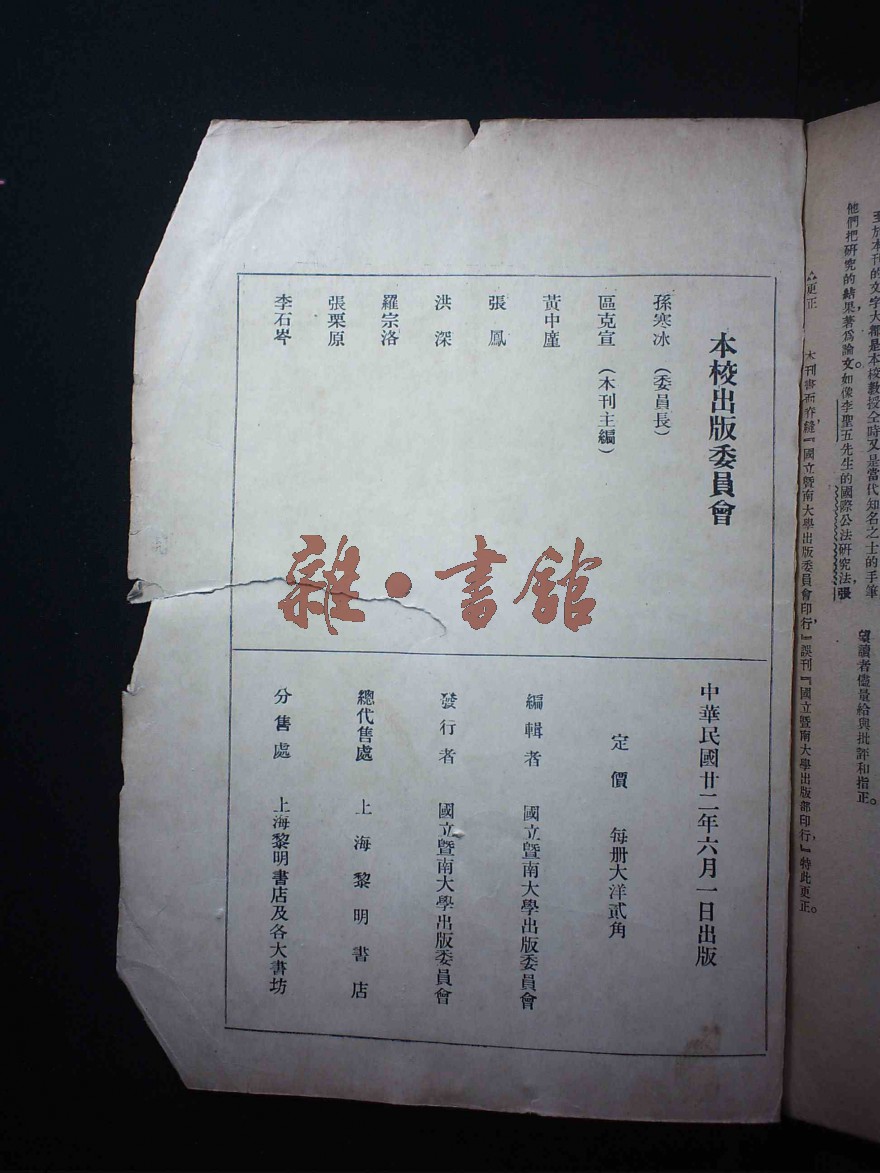 至於本刊的文字大都是本校教授全時又是當代知名之士的手筆，
他們把研究的結果著爲論文。如像李聖五先生的國際公法研究法，張
望讀者儘量給與批評和指正。
更正　本刊書面脊縫『國立暨南大學出版委員會印行，』誤刊『國立暨南大學出版部印行，』特此更正。
本校出版委員會
孫寒冰（委員長）
區克宣（本刊主編）
黃中廑
張鳳
洪深
羅宗洛
張栗原
李石岑
中華民國廿二年六月一日出版
定價　每册大洋貳角
編輯者　國立暨南大學出版委員會
發行者　國立暨南大學出版委員會
總代售處　上海黎明書店
分售處　上海黎明書店及各大書坊
雜·書館